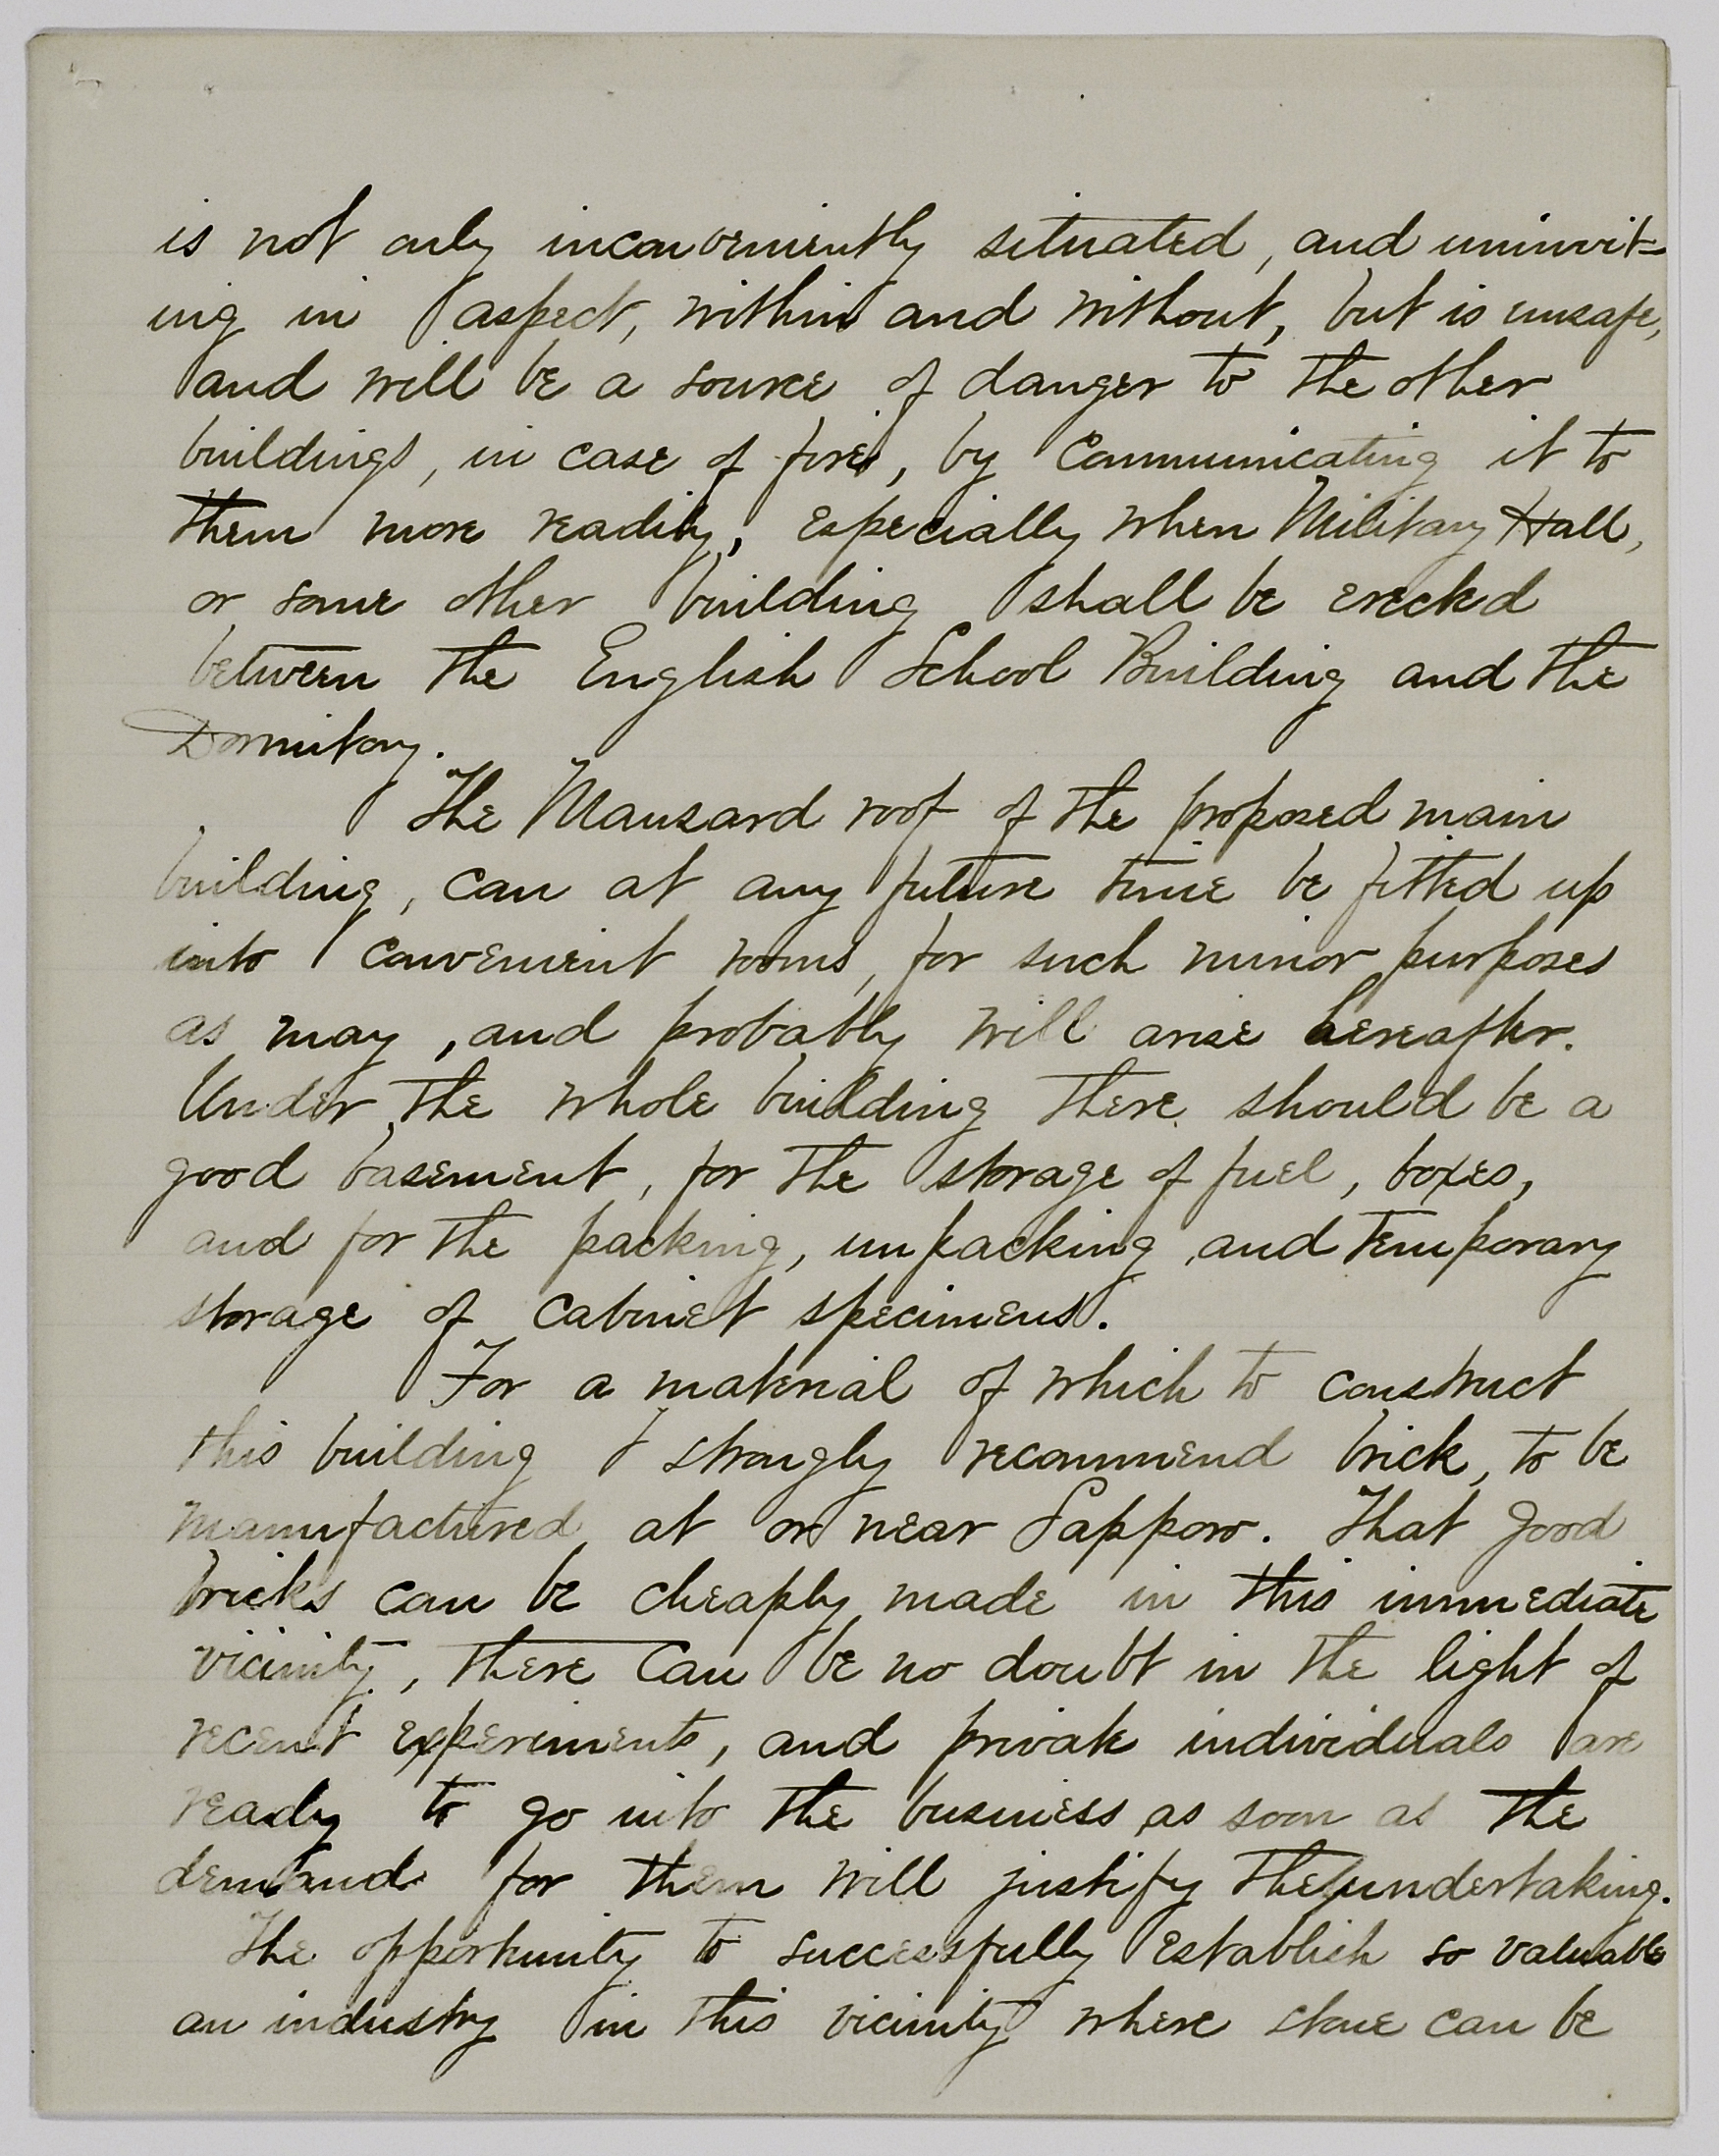 is not only inconveniently situated, and uninvit=
ing in aspect, within and without, but is unsafe,
and will be a source of danger to the other
buildings, in case of fire, by communicating it to
them more readily, especially when Military Hall,
or some other building shall be erected
between the English School Building and the
Dormitory.
The Mansard roof of the proposed main
building, can at any future time be fitted up
into convenient rooms, for such minor purposes
as may, and probably will arise hereafter.
Under the whole building there should be a
good basement, for the storage of fuel, boxes,
and for the packing, unpacking and temporary
storage of cabinet specimens.
For a material of which to construct
this building I strongly recommend brick, to be
manufactured at or near Sapporo. That good
bricks can be cheaply made in this immediate
vicinity, there can be no doubt in the light of
recent experiments, and private individuals are
ready to go into the business as soon as the
demand for them will justify the undertaking.
The opportunity to successfully establish so valuable
an industry in this vicinity where stone can be